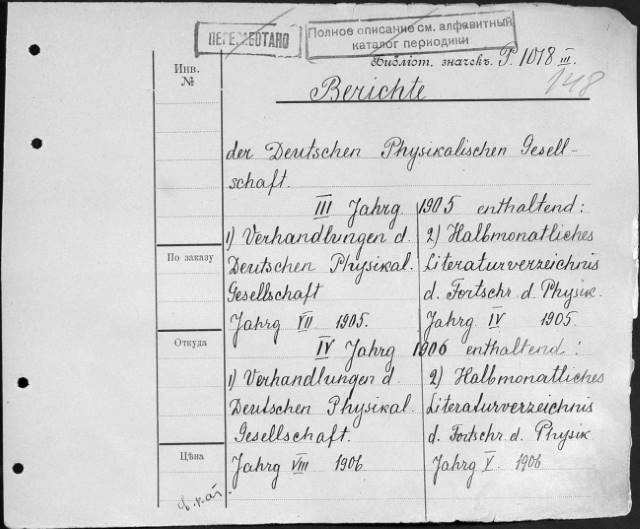 ПЕРЕРАБОТАНО
Полное описание см. алфавитный
каталог периодики
Библіот. значекъ P. 1018 III.
148
Инв.
№
Berichte
der Deutschen Physikalischen Gesell-
schaft.
III Jahrg 1905 enthaltend:
1) Verhandlungen d.
Deutschen Physikal.
Gesellschaft
Jahrg VII 1905.
2) Halbmonatliches
Literaturverzeichnis
d. Fortschr d. Physik.
Jahrg IV 1905.
По заказу
Откуда
IV Jahrg 1906 enthaltend:
1) Verhandlungen d.
Deutschen Physikal.
Gesellschaft.
Jahrg VIII 1906
2) Halbmonatliches
Literaturverzeichnis
d. Fortschr. d. Physik
Jahrg V. 1906
Цѣна